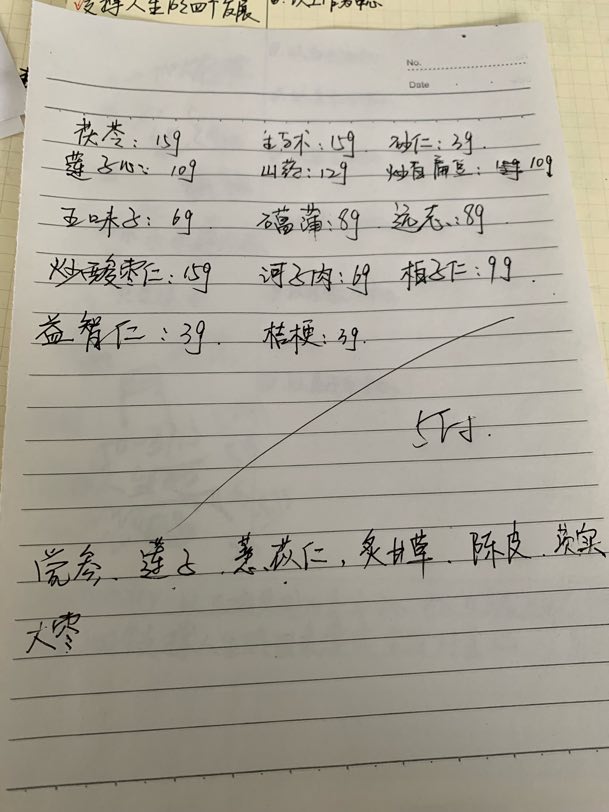 支持人生的四个发展
No.
Date
茯苓：15g 生白术：15g 砂仁：3g.
莲子心：10g 山药：12g 炒白扁豆：15g 10g
五味子：6g 石菖蒲：8g 远志：8g
炒酸枣仁：15g 诃子肉：6g 柏子仁：9g.
益智仁：3g. 桔梗：3g.
5付.
党参、莲子、薏苡仁，炙甘草、陈皮、芡实
大枣